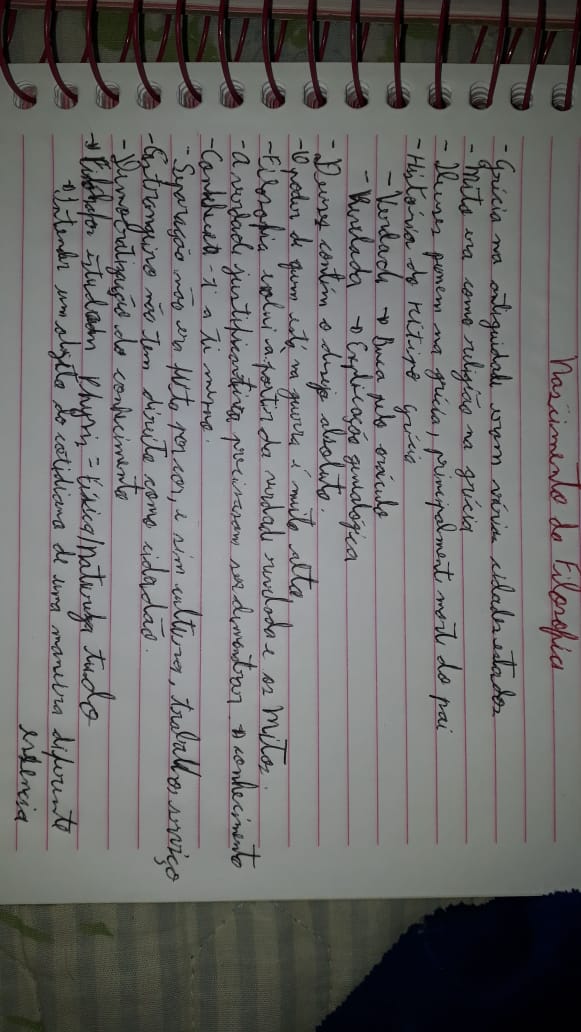 Nascimento da Filosofia
- Grécia na antiguidade eram várias cidades estados
- Mito era como religião na grécia
- Deuses punem na grécia, principalmente morte do pai
- História do Édipo grécia
- Verdade → Busca pelo oráculo
- Revelada → Explicação genealógica
- Deuses contém o desejo absoluto.
- O poder de quem está na guerra é muito alto
- Filosofia evolui a partir da verdade revelada e os Mitos.
- A verdade justificativa, precisaram ser demonstrar → conhecimento
- Conhece-te a ti mesmo.
- Separação não era feita por cor, e sim cultura, trabalho, serviço
- Estrangeiro não tem direito como cidadão.
- Democratização do conhecimento
→ Filósofos estudavam Physis = física/natureza tudo
→ Entender um objeto do cotidiano de uma maneira diferente
essência